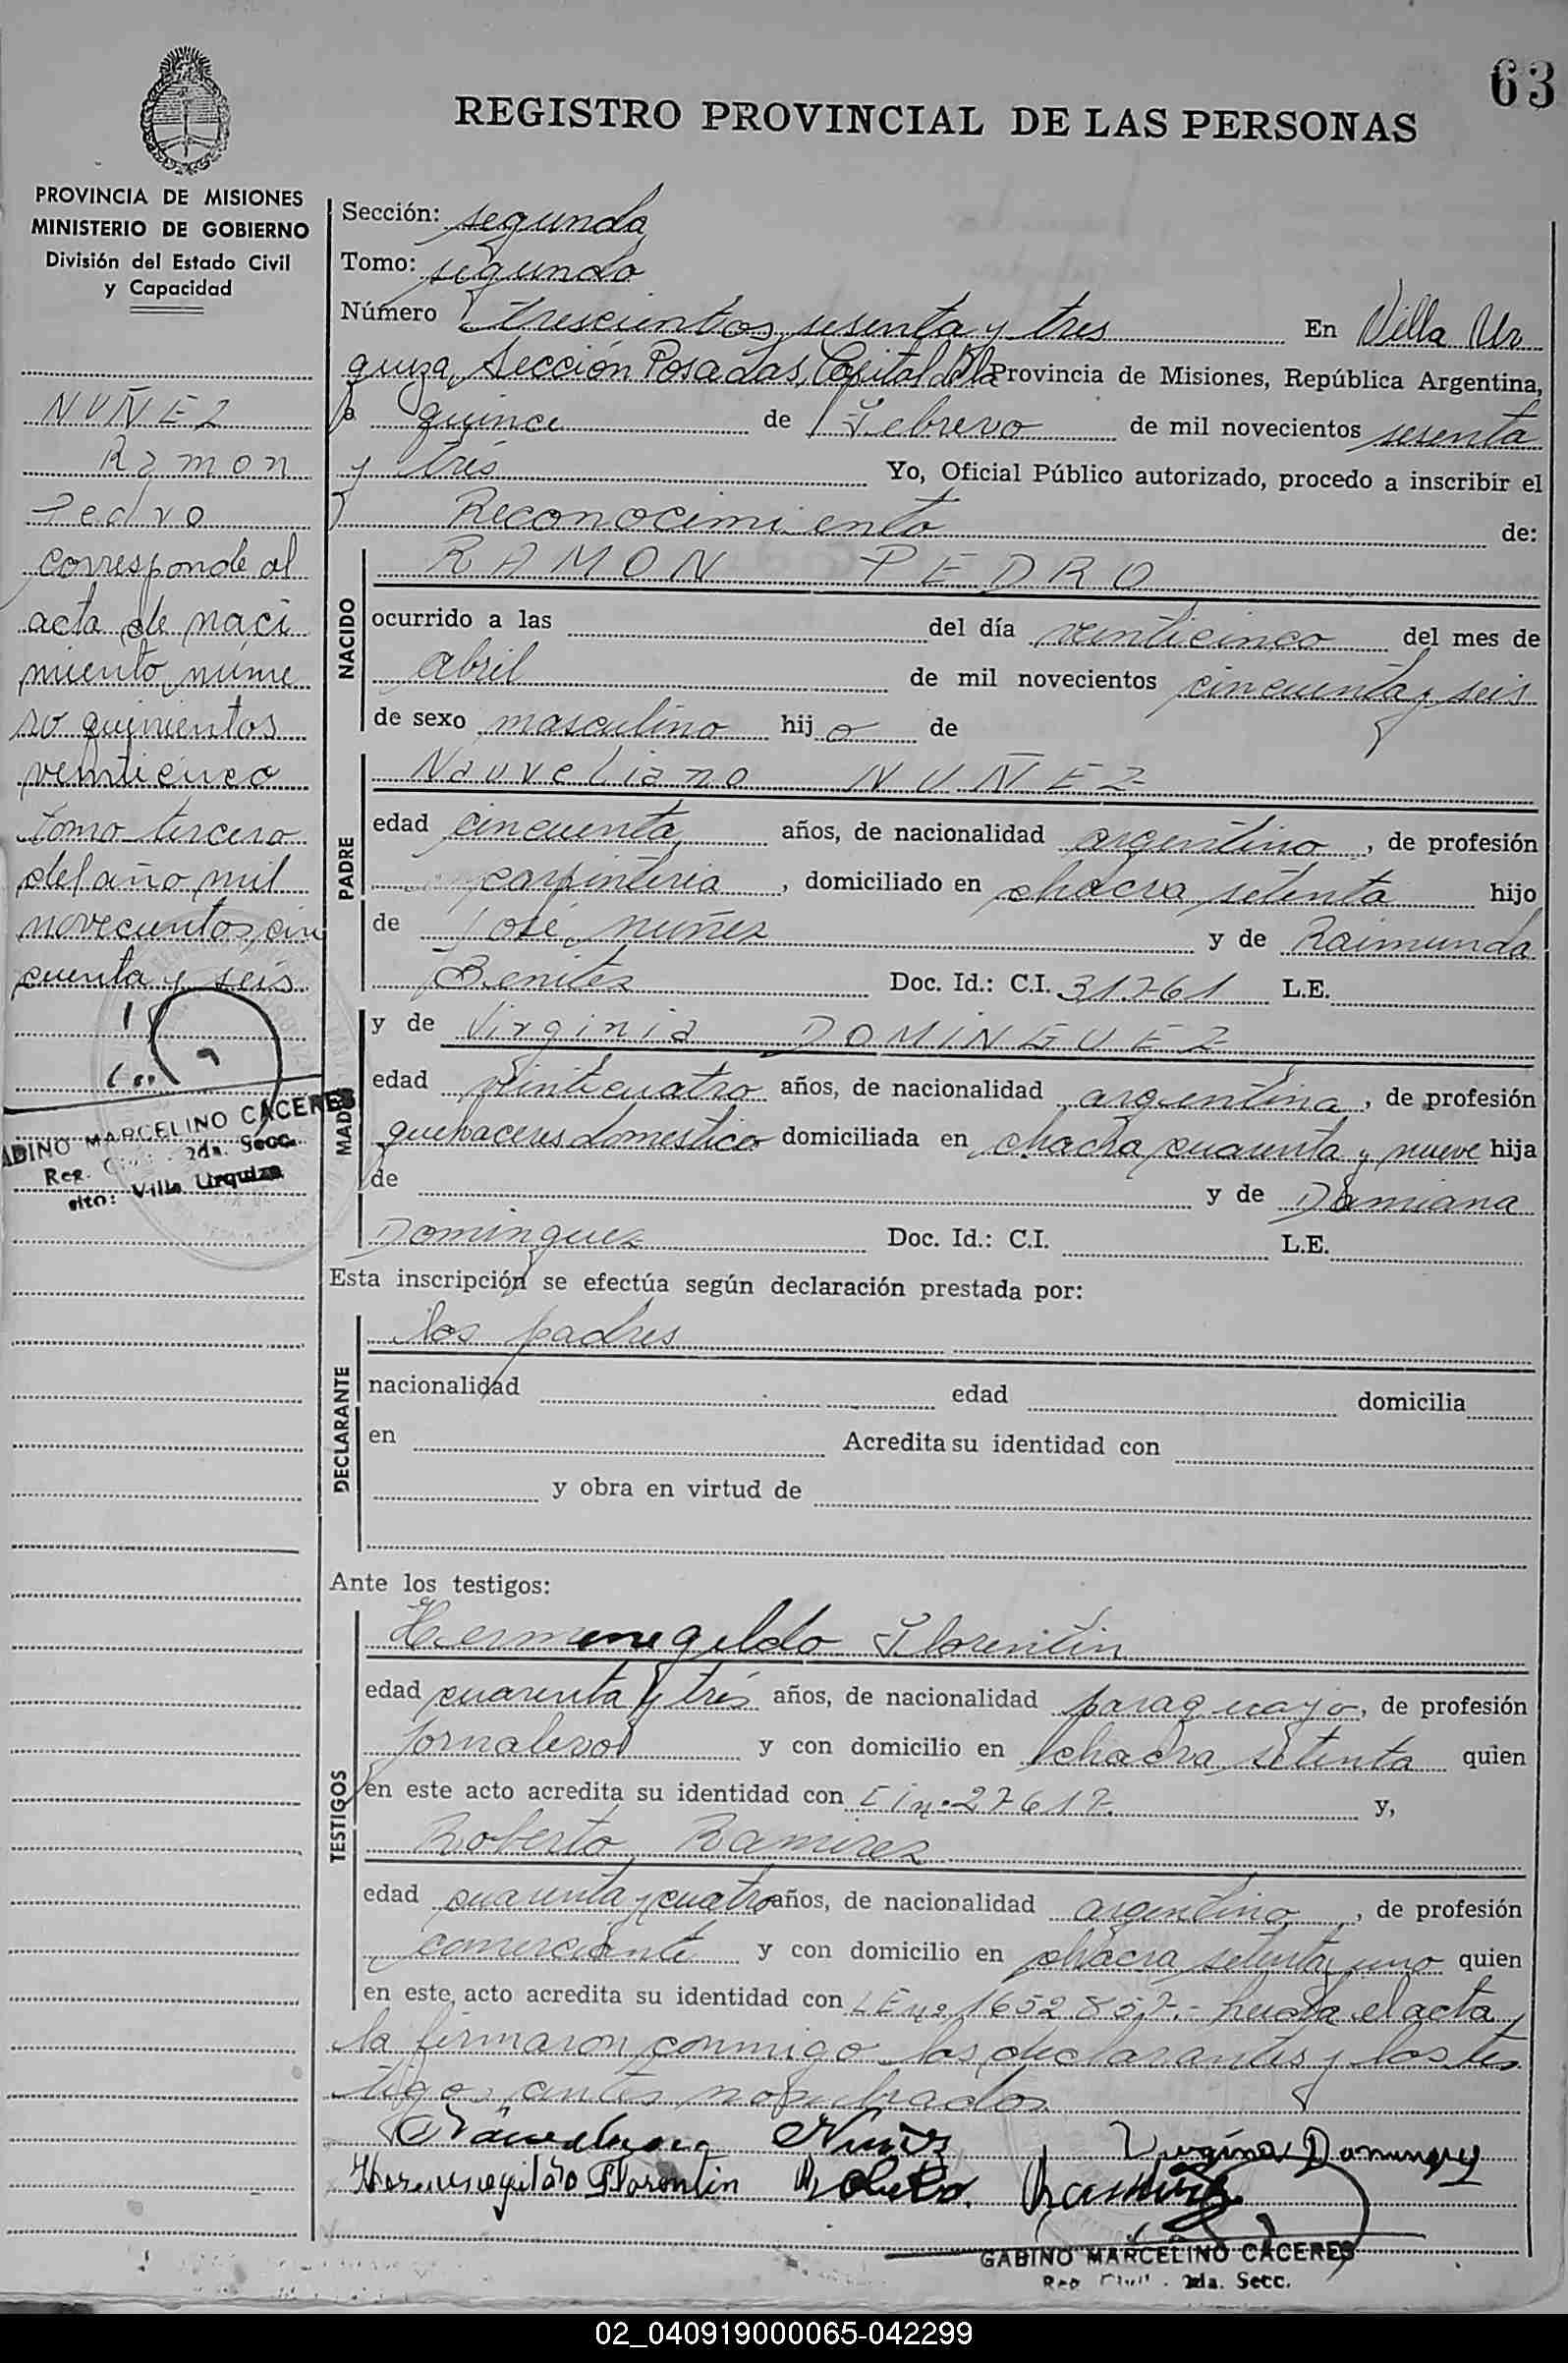 63
REGISTRO PROVINCIAL DE LAS PERSONAS
PROVINCIA DE MISIONES
MINISTERIO DE GOBIERNO
División del Estado Civil
y Capacidad
NUÑEZ
Ramon
Pedro
corresponde al
acta de naci
miento núme
ro quinientos
venticinco
tomo tercero
del año mil
novecientos cin
cuenta y seis.
MARCELINO CACERES
2da. Secc.
Villa Urquiza
Sección: segunda
Tomo: segundo
Número trescientos sesenta y tres En Villa Ur
quiza, Sección Posadas, Capital de la Provincia de Misiones, República Argentina,
a quince de Febrero de mil novecientos sesenta
y tres Yo, Oficial Público autorizado, procedo a inscribir el
Reconocimiento de:
NACIDO
RAMON PEDRO
ocurrido a las del día venticinco del mes de
abril de mil novecientos cincuenta y seis
de sexo masculino hijo de
PADRE
Nauveliano NUÑEZ
edad cincuenta años, de nacionalidad argentino, de profesión
carpinteria, domiciliado en chacra setenta hijo
de José nuñez y de Raimunda
Benitez Doc. Id.: C.I. 31761 L.E.
MADRE
y de Virginia DOMINGUEZ
edad veinticuatro años, de nacionalidad argentina, de profesión
quehaceres domestico domiciliada en chacra cuarenta y nueve hija
de y de Damiana
Dominguez Doc. Id.: C.I. L.E.
Esta inscripción se efectúa según declaración prestada por:
DECLARANTE
los padres
nacionalidad edad domicilia
en Acredita su identidad con
y obra en virtud de
Ante los testigos:
TESTIGOS
Hermenegildo Florentin
edad cuarenta y tres años, de nacionalidad paraguayo, de profesión
jornalero y con domicilio en chacra setenta quien
en este acto acredita su identidad con 27617 y,
Roberto Ramirez
edad cuarenta y cuatro años, de nacionalidad argentino, de profesión
comerciante y con domicilio en chacra setenta uno quien
en este acto acredita su identidad con LE nº 1652857.- el acta
la firmaron conmigo los declarantes y los tes
tigos antes nombrados
Nuñez Virginia Dominguez
Hermenegildo Florentin Roberto Ramirez
GABINO MARCELINO CACERES
Reg. Civil . 2da. Secc.
02_040919000065-042299